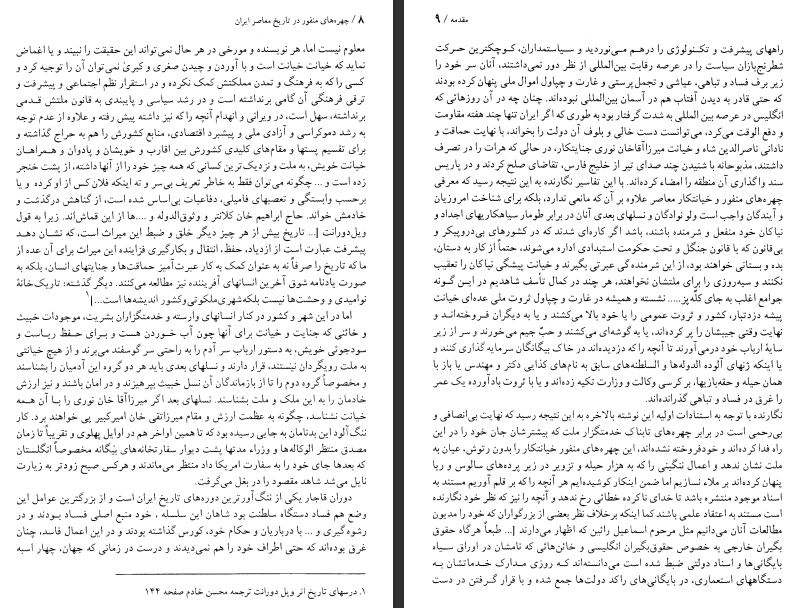 ۸ / چهره‌های منفور در تاریخ معاصر ایران
معلوم نیست اما، هر نویسنده و مورخی در هر حال نمی‌تواند این حقیقت را نبیند و یا اغماض
نماید که خیانت خیانت است و با آوردن و چیدن صغری و کبری نمی‌توان آن را توجیه کرد و
کسی را که به فرهنگ و تمدن مملکتش کمک نکرده و در استقرار نظم اجتماعی و پیشرفت و
ترقی فرهنگی آن گامی برنداشته است و در رشد سیاسی و پایبندی به قانون ملتش قدمی
برنداشته، سهل است، در ویرانی و انهدام آنچه را که نیز داشته پیش رفته و علاوه از عدم توجه
به رشد دموکراسی و آزادی ملی و پیشبرد اقتصادی، منابع کشورش را هم به حراج گذاشته و
برای تقسیم پستها و مقام‌های کلیدی کشورش بین اقارب و خویشان و پادوان و همراهان
خیانت خویش، به ملت و نزدیک‌ترین کسانی که همه چیز خود را از آنها داشته، از پشت خنجر
زده است و ... چگونه می‌توان فقط به خاطر تعریف بی‌سر و ته اینکه فلان کس از او کرده و یا
برحسب وابستگی و تعصبهای فامیلی، دفاعیات بی‌اساس شده است، از گناهش درگذشت و
خادمش خواند. حاج ابراهیم خان کلانتر و وثوق‌الدوله و ....ها از این قماش‌اند. زیرا به قول
ویل‌دورانت [... تاریخ بیش از هر چیز دیگر خلق و ضبط این میراث است، که نشان دهد
پیشرفت عبارت است از ازدیاد، حفظ، انتقال و بکارگیری فزاینده این میراث برای آن عده از
ما که تاریخ را صرفاً نه به عنوان کمک به کار عبرت‌آمیز حماقت‌ها و جنایتهای انسان، بلکه به
صورت یادنامه شوق آخرین انسانهای آفریننده نیز مطالعه می‌کنند. دیگر گذشته: تاریک‌خانهٔ
نوامیدی و وحشت‌ها نیست بلکه شهری ملکوتی وکشور اندیشه‌ها است...]۱
اما در این شهر و کشور در کنار انسانهای وارسته و خدمتگزاران بشریت، موجودات خبیث
و خائنی که جنایت و خیانت برای آنها چون آب خوردن هست و برای حفظ ریاست و
سودجوئی خویش، به دستور ارباب سر آدم را به راحتی سر گوسفند می‌برند و از هیچ خیانتی
به ملت رویگردان نیستند، قرار دارند و نسلهای بعدی باید هر دو گروه این آدمیان را بشناسند
و مخصوصاً گروه دوم را تا از بازماندگان آن نسل خبیث بپرهیزند و در امان باشند و نیز ارزش
خادمان را به این ملک و ملت بشناسند. نسلهای بعد اگر میرزاآقا خان نوری را با آن همه
خیانت نشناسد، چگونه به عظمت ارزش و مقام میرزاتقی خان امیرکبیر پی خواهند برد. کار
ننگ‌آلود این بدنامان به جایی رسیده بود که تا همین اواخر هم در اوایل پهلوی و تقریباً تا زمان
مصدق منتظر الوکاله‌ها و وزراء مدتها پشت دیوار سفارتخانه‌های بیگانه مخصوصاً انگلستان
که بعدها جای خود را به سفارت امریکا داد منتظر می‌ماندند و هرکس صبح زودتر به زیارت
نایل می‌شد شاهد مقصود را در بغل می‌گرفت.
دوران قاجار یکی از ننگ‌آورترین دوره‌های تاریخ ایران است و از بزرگترین عوامل این
وضع هم فساد دستگاه سلطنت بود شاهان این سلسله ، خود منبع اصلی فساد بودند و در
رشوه‌گیری و ... با درباریان و حکام خود، کورس گذاشته بودند و در این اعمال فاسد، چنان
غرق بوده‌اند که حتی اطراف خود را هم نمی‌دیدند و درست در زمانی که جهان، چهار اسبه
۱. درسهای تاریخ اثر ویل دورانت ترجمه محسن خادم صفحه ۱۴۴
مقدمه / ۹
راههای پیشرفت و تکنولوژی را درهم می‌نوردید و سیاستمداران، کوچکترین حرکت
شطرنج‌بازان سیاست را در عرصه رقابت بین‌المللی از نظر دور نمی‌داشتند، آنان سر خود را
زیر برف فساد و تباهی، عیاشی و تجمل‌پرستی و غارت و چپاول اموال ملی پنهان کرده بودند
که حتی قادر به دیدن آفتاب هم در آسمان بین‌المللی نبوده‌اند. چنان چه در آن روزهائی که
انگلیس در عرصه بین المللی به شدت گرفتار بود به طوری که اگر ایران تنها چند هفته مقاومت
و دفع الوقت می‌کرد، می‌توانست دست خالی و بلوف آن دولت را بخواند، با نهایت حماقت و
نادانی ناصرالدین شاه و خیانت میرزاآقاخان نوری جنایتکار، در حالی که هرات را در تصرف
داشتند، مذبوحانه با شنیدن چند صدای تیر از خلیج فارس، تقاضای صلح کردند و در پاریس
سند واگذاری آن منطقه را امضاء کرده‌اند. با این تفاسیر نگارنده به این نتیجه رسید که معرفی
چهره‌های منفور و خیانتکار معاصر علاوه بر آن که مانعی ندارد، بلکه برای شناخت امروزیان
و آیندگان واجب است ولو نوادگان و نسلهای بعدی آنان در برابر طومار سیاهکاریهای اجداد و
نیاکان خود منفعل و شرمنده باشند، باشد اگر کاره‌ای شدند که در کشورهای بی‌دروپیکر و
بی‌قانون که با قانون جنگل و تحت حکومت استبدادی اداره می‌شوند، حتماً از کار به دستان،
بده و بستانی خواهند بود، از این شرمندگی عبرتی بگیرند و خیانت پیشگی نیاکان را تعقیب
نکنند و سیه‌روزی را برای ملتشان نخواهند، هر چند در کمال تأسف شاهدیم در این گونه
جوامع اغلب به جای کلّه پَز..... نشسته و همیشه در غارت و چپاول ثروت ملی عده‌ای خیانت
پیشه دزدتبار، کشور و ثروت عمومی را یا خود بالا می‌کشند و یا به دیگران فروخته‌اند و
نهایت وقتی جیبشان را پر کرده‌اند، یا به گوشه‌ای می‌کشند و حبّ جیم می‌خورند و سر از زیر
سایهٔ ارباب خود درمی‌آورند تا آنچه را که دزدیده‌اند در خاک بیگانگان سرمایه گذاری کنند و
یا اینکه ژنهای آلوده الدوله‌ها و السلطنه‌های سابق به نام‌های کذایی دکتر و مهندس یا باز با
همان حیله و حقه‌بازیها، بر کرسی وکالت و وزارت تکیه زده‌اند و یا با ثروت بادآورده یک عمر
را غرق در فساد و تباهی گذرانده‌اند.
نگارنده با توجه به استنادات اولیه این نوشته بالاخره به این نتیجه رسید که نهایت بی‌انصافی و
بی‌رحمی است در برابر چهره‌های تابناک خدمتگزار ملت که بیشترشان جان خود را در این
راه فدا کرده‌اند و خودفروخته نشده‌اند، این چهره‌های منفور خیانتکار را بدون رتوش، عیان به
ملت نشان ندهد و اعمال ننگینی را که به هزار حیله و تزویر در زیر پرده‌های سالوس و ریا
پنهان کرده‌اند بر ملاء نسازیم اما ضمن اینکار کوشیده‌ایم هر آنچه را که بر قلم آوریم مستند به
اسناد موجود منتشره باشد تا خدای ناکرده خطائی رخ ندهد و آنچه را نیز که نظر خود نگارنده
است مستند به اعتقاد علمی باشند کما اینکه برخلاف نظر بعضی از بزرگواران که خود را مدیون
مطالعات آنان می‌دانیم مثل مرحوم اسماعیل رائین که اظهار می‌دارند [... طبعاً هرگاه حقوق
بگیران خارجی به خصوص حقوق‌بگیران انگلیسی و خائن‌هائی که نامشان در اوراق سیاه
بایگانی‌ها و اسناد دولتی ضبط شده است می‌دانسته‌اند که روزی مدارک خدماتشان به
دستگاههای استعماری، در بایگانی‌های راکد دولت‌ها جمع شده و با قرار گرفتن در دست